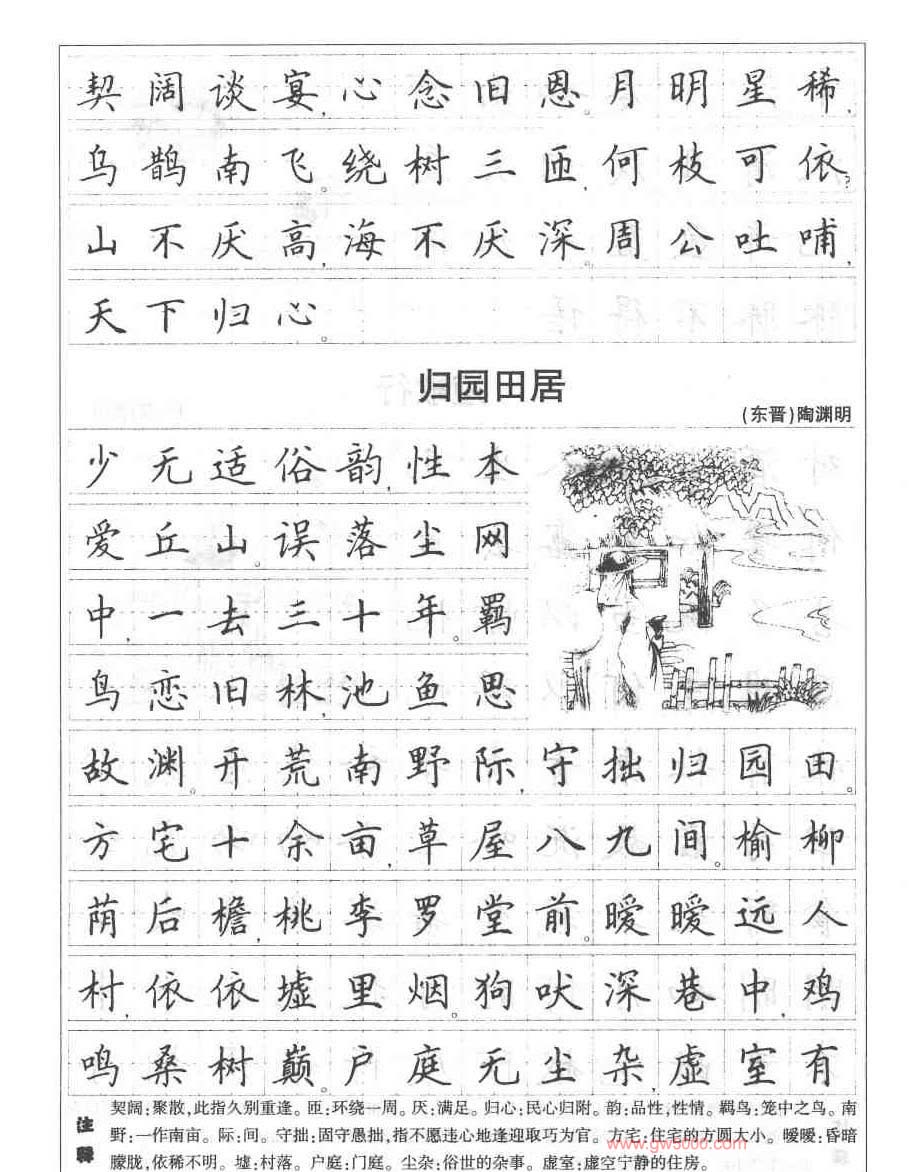 契阔谈宴,心念旧恩。月明星稀,
乌鹊南飞。绕树三匝,何枝可依?
山不厌高,海不厌深。周公吐哺,
天下归心。
归园田居
(东晋)陶渊明
少无适俗韵,性本
爱丘山。误落尘网
中,一去三十年。羁
鸟恋旧林,池鱼思
故渊。开荒南野际,守拙归园田。
方宅十余亩,草屋八九间。榆柳
荫后檐,桃李罗堂前。暧暧远人
村,依依墟里烟。狗吠深巷中,鸡
鸣桑树巅。户庭无尘杂,虚室有
注释
契阔:聚散,此指久别重逢。匝:环绕一周。厌:满足。归心:民心归附。韵:品性,性情。羁鸟:笼中之鸟。南
野:一作南亩。际:间。守拙:固守愚拙,指不愿违心地逢迎取巧为官。方宅:住宅的方圆大小。暧暧:昏暗
朦胧,依稀不明。墟:村落。户庭:门庭。尘杂:俗世的杂事。虚室:虚空宁静的住房。
www.gw5000.com